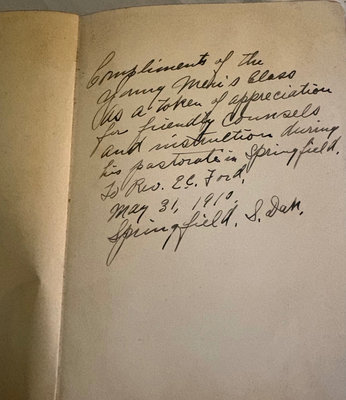 Compliments of the
Young Men's Class
As a token of appreciation
for friendly counsels
and instruction during
his pastorate in Springfield.
To Rev. E.C. Ford.
May 31, 1910.
Springfield, S. Dak.